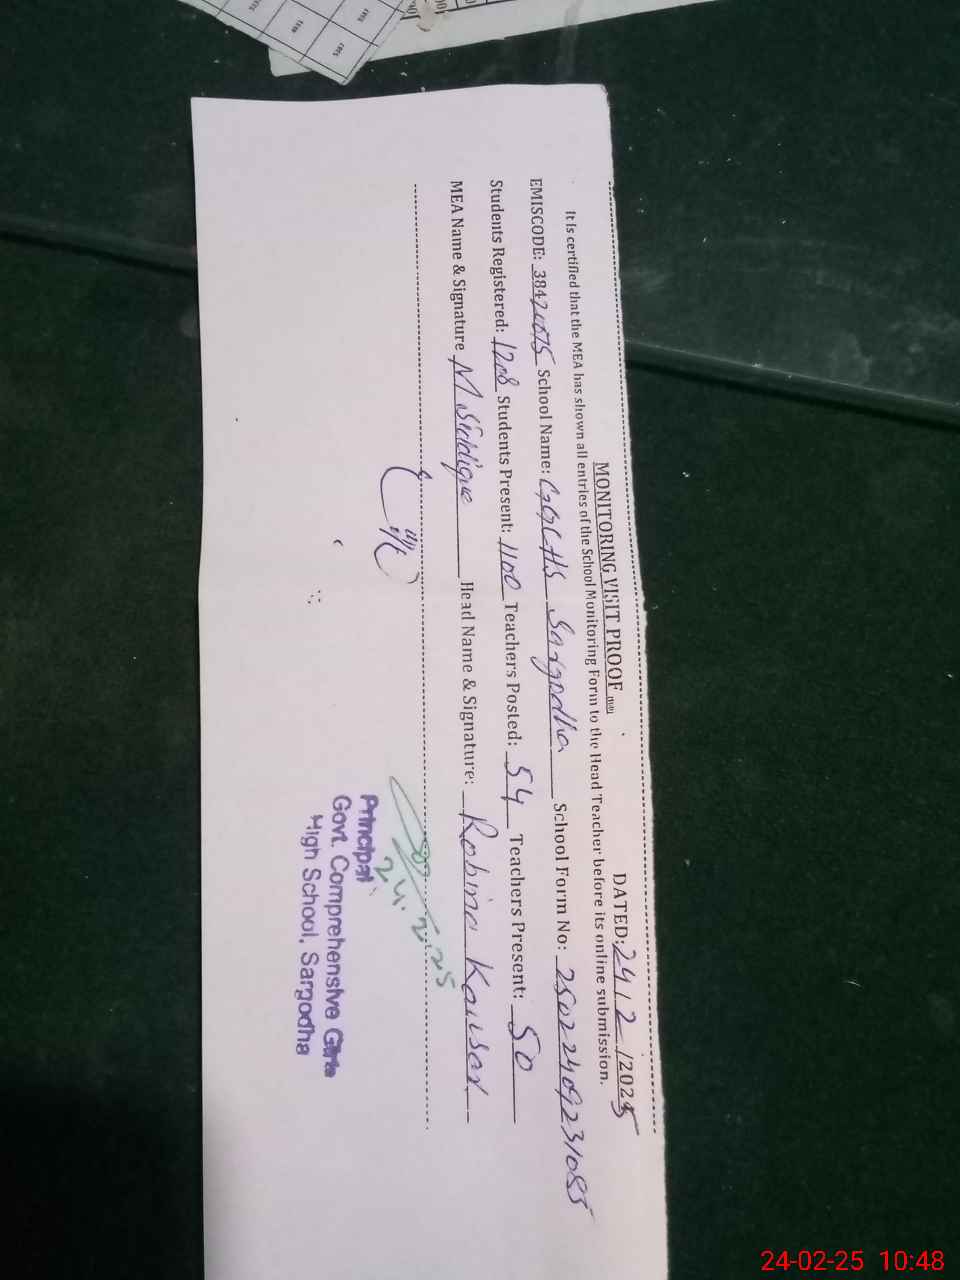 MONITORING VISIT PROOF DATED: 24/2/2025
It Is certified that the MEA has shown all entries of the School Monitoring Form to the Head Teacher before its online submission.
EMISCODE: School Name: GGCHS Sargodha School Form No: 25022409231085
Students Registered: 1208 Students Present: 1100 Teachers Posted: 54 Teachers Present: 50
MEA Name & Signature M Siddique Head Name & Signature: Robina Kausar
24.2.25
Principal
Govt. Comprehensive Girls
High School, Sargodha
24-02-25 10:48